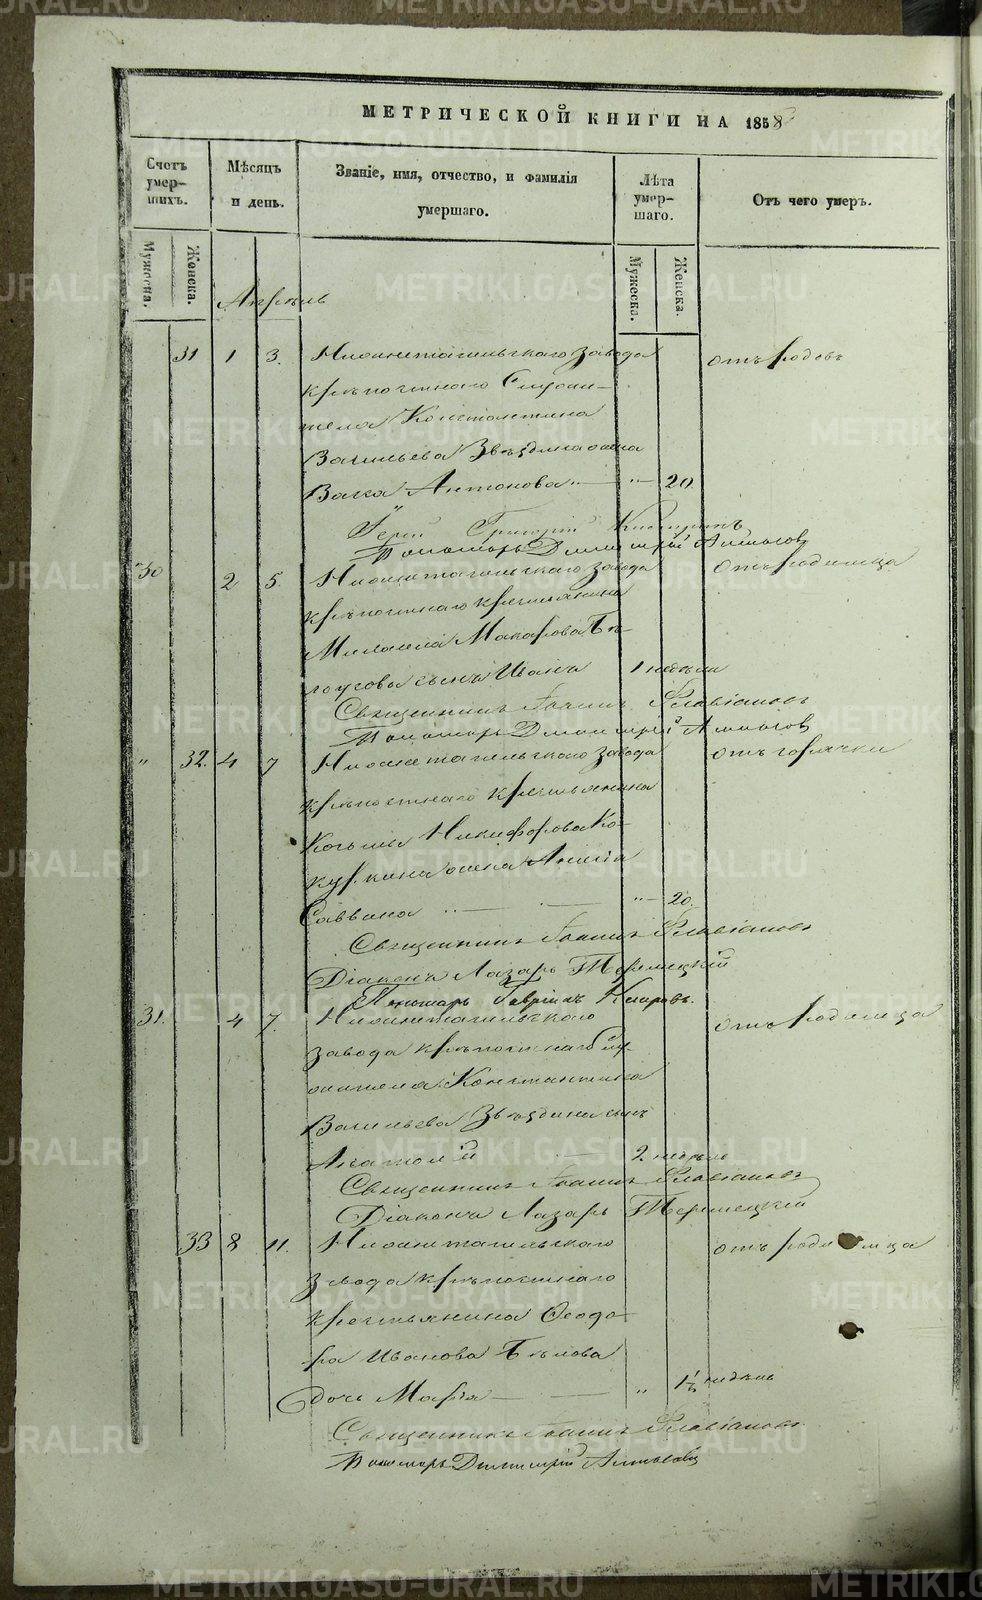 МЕТРИЧЕСКОЙ КНИГИ НА 1858
Счетъ умер-шихъ.
Мѣсяцъ и день.
Званіе, имя, отчество, и фамилія умершаго.
Лѣта умер-шаго.
Отъ чего умеръ.
Мужеска.
Женска.
Мужеска.
Женска.
Апрѣль
31 1 3. Нижнетагильскаго завода отъ родовъ
крѣпостнаго Служи-
теля Константина
Васильева Звѣздина жена
Антонова " 20
Іерей Григорій
Пономарь Димитрій
30 2 5. Нижнетагильскаго завода отъ родимца
крѣпостнаго крестьянина
Михаила Макарова Бѣ-
лоусова сынъ Иванъ 1 недѣли
Священникъ Іоаннъ Флавіановъ
Пономарь Димитрій
" 32. 4 7 Нижнетагильскаго завода отъ горячки
крѣпостнаго крестьянина
Козьмы Никифорова Ко-
куркина жена Анисія
Саввина " 20.
Священникъ Іоаннъ Флавіановъ
Діаконъ Лазарь
Пономарь Гавріилъ
31. 4 7. Нижнетагильскаго отъ родимца
завода крѣпостнаго Слу-
жителя Константина
Васильева Звѣздина сынъ
Анатолій 2 недѣль
Священникъ Іоаннъ Флавіановъ
Діаконъ Лазарь
33 8 11. Нижнетагильскаго отъ родимца
завода крѣпостнаго
крестьянина Ѳеодо-
ра Иванова Бѣлова
дочь Марія " 1½ недѣль
Священникъ Іоаннъ Флавіановъ
Пономарь Димитрій
METRIKI.GASO-URAL.RU